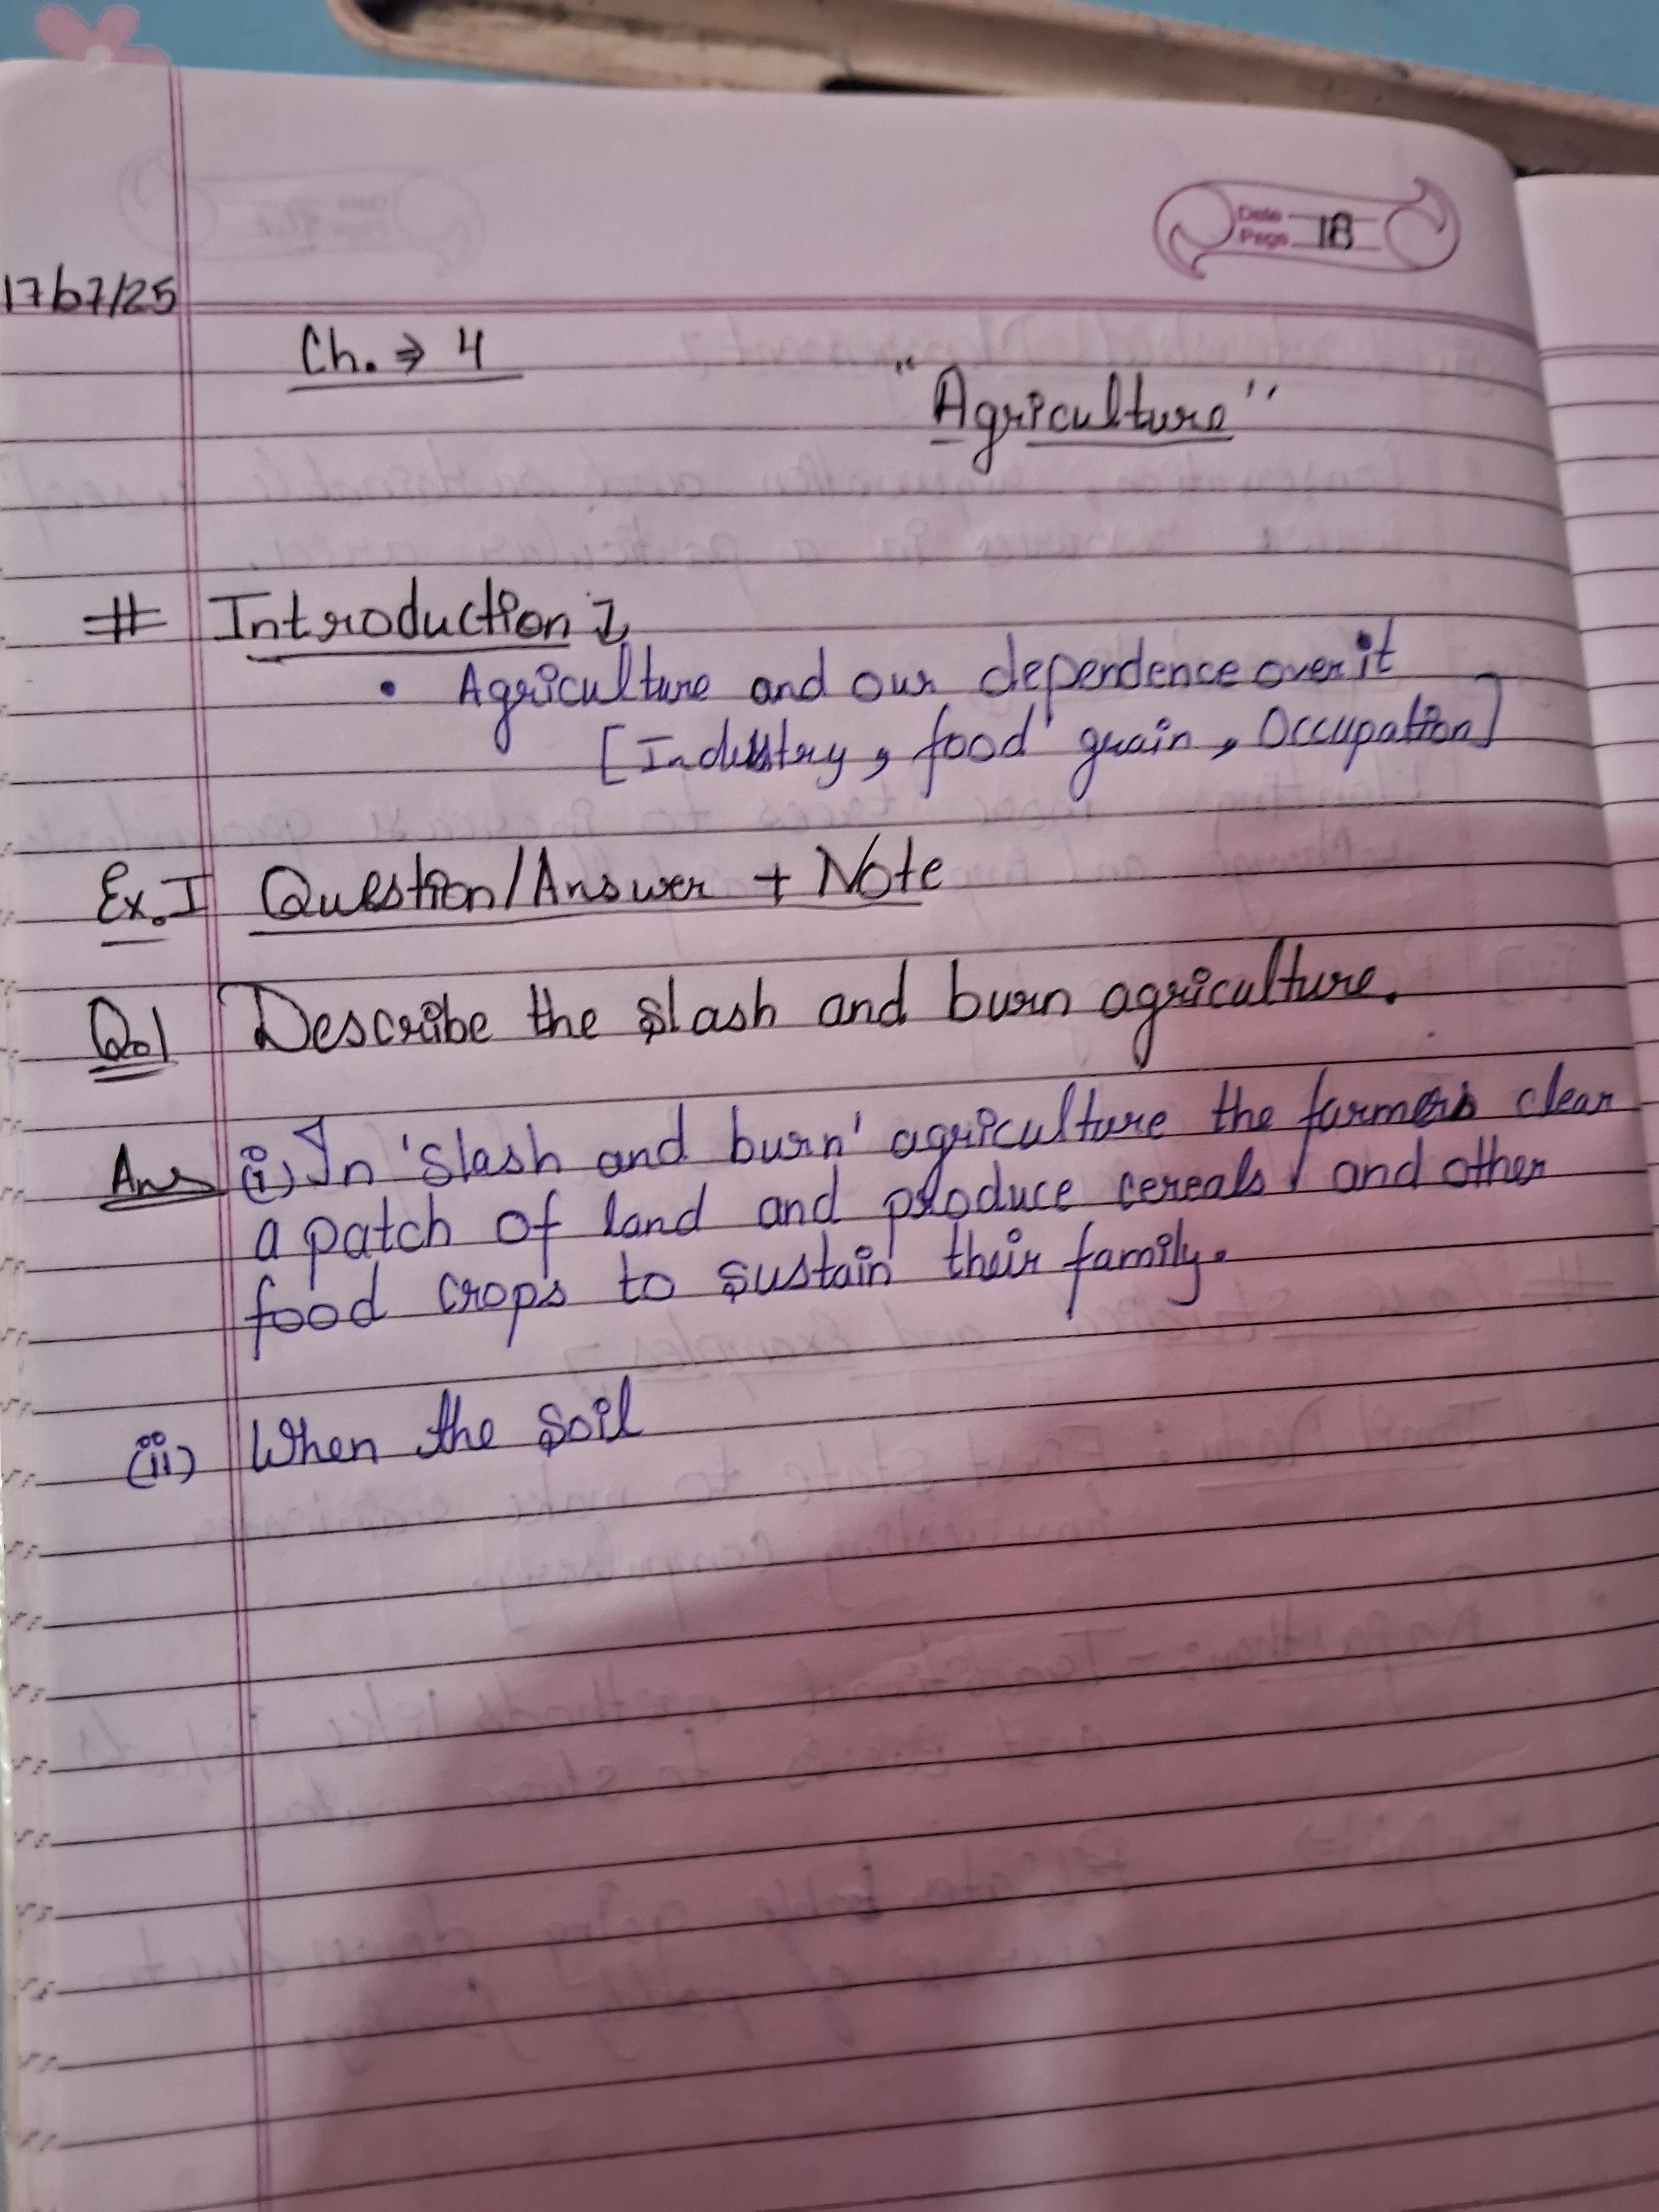 Date
Page 18
17/07/25
Ch. ⇒ 4
"Agriculture"
# Introduction
• Agriculture and our dependence over it
[Industry, food grain, Occupation]
Ex. I Question/Answer + Note
Q.1 Describe the slash and burn agriculture.
Ans (i) In 'slash and burn' agriculture the farmers clear
a patch of land and produce cereals and other
food crops to sustain their family.
(ii) When the soil